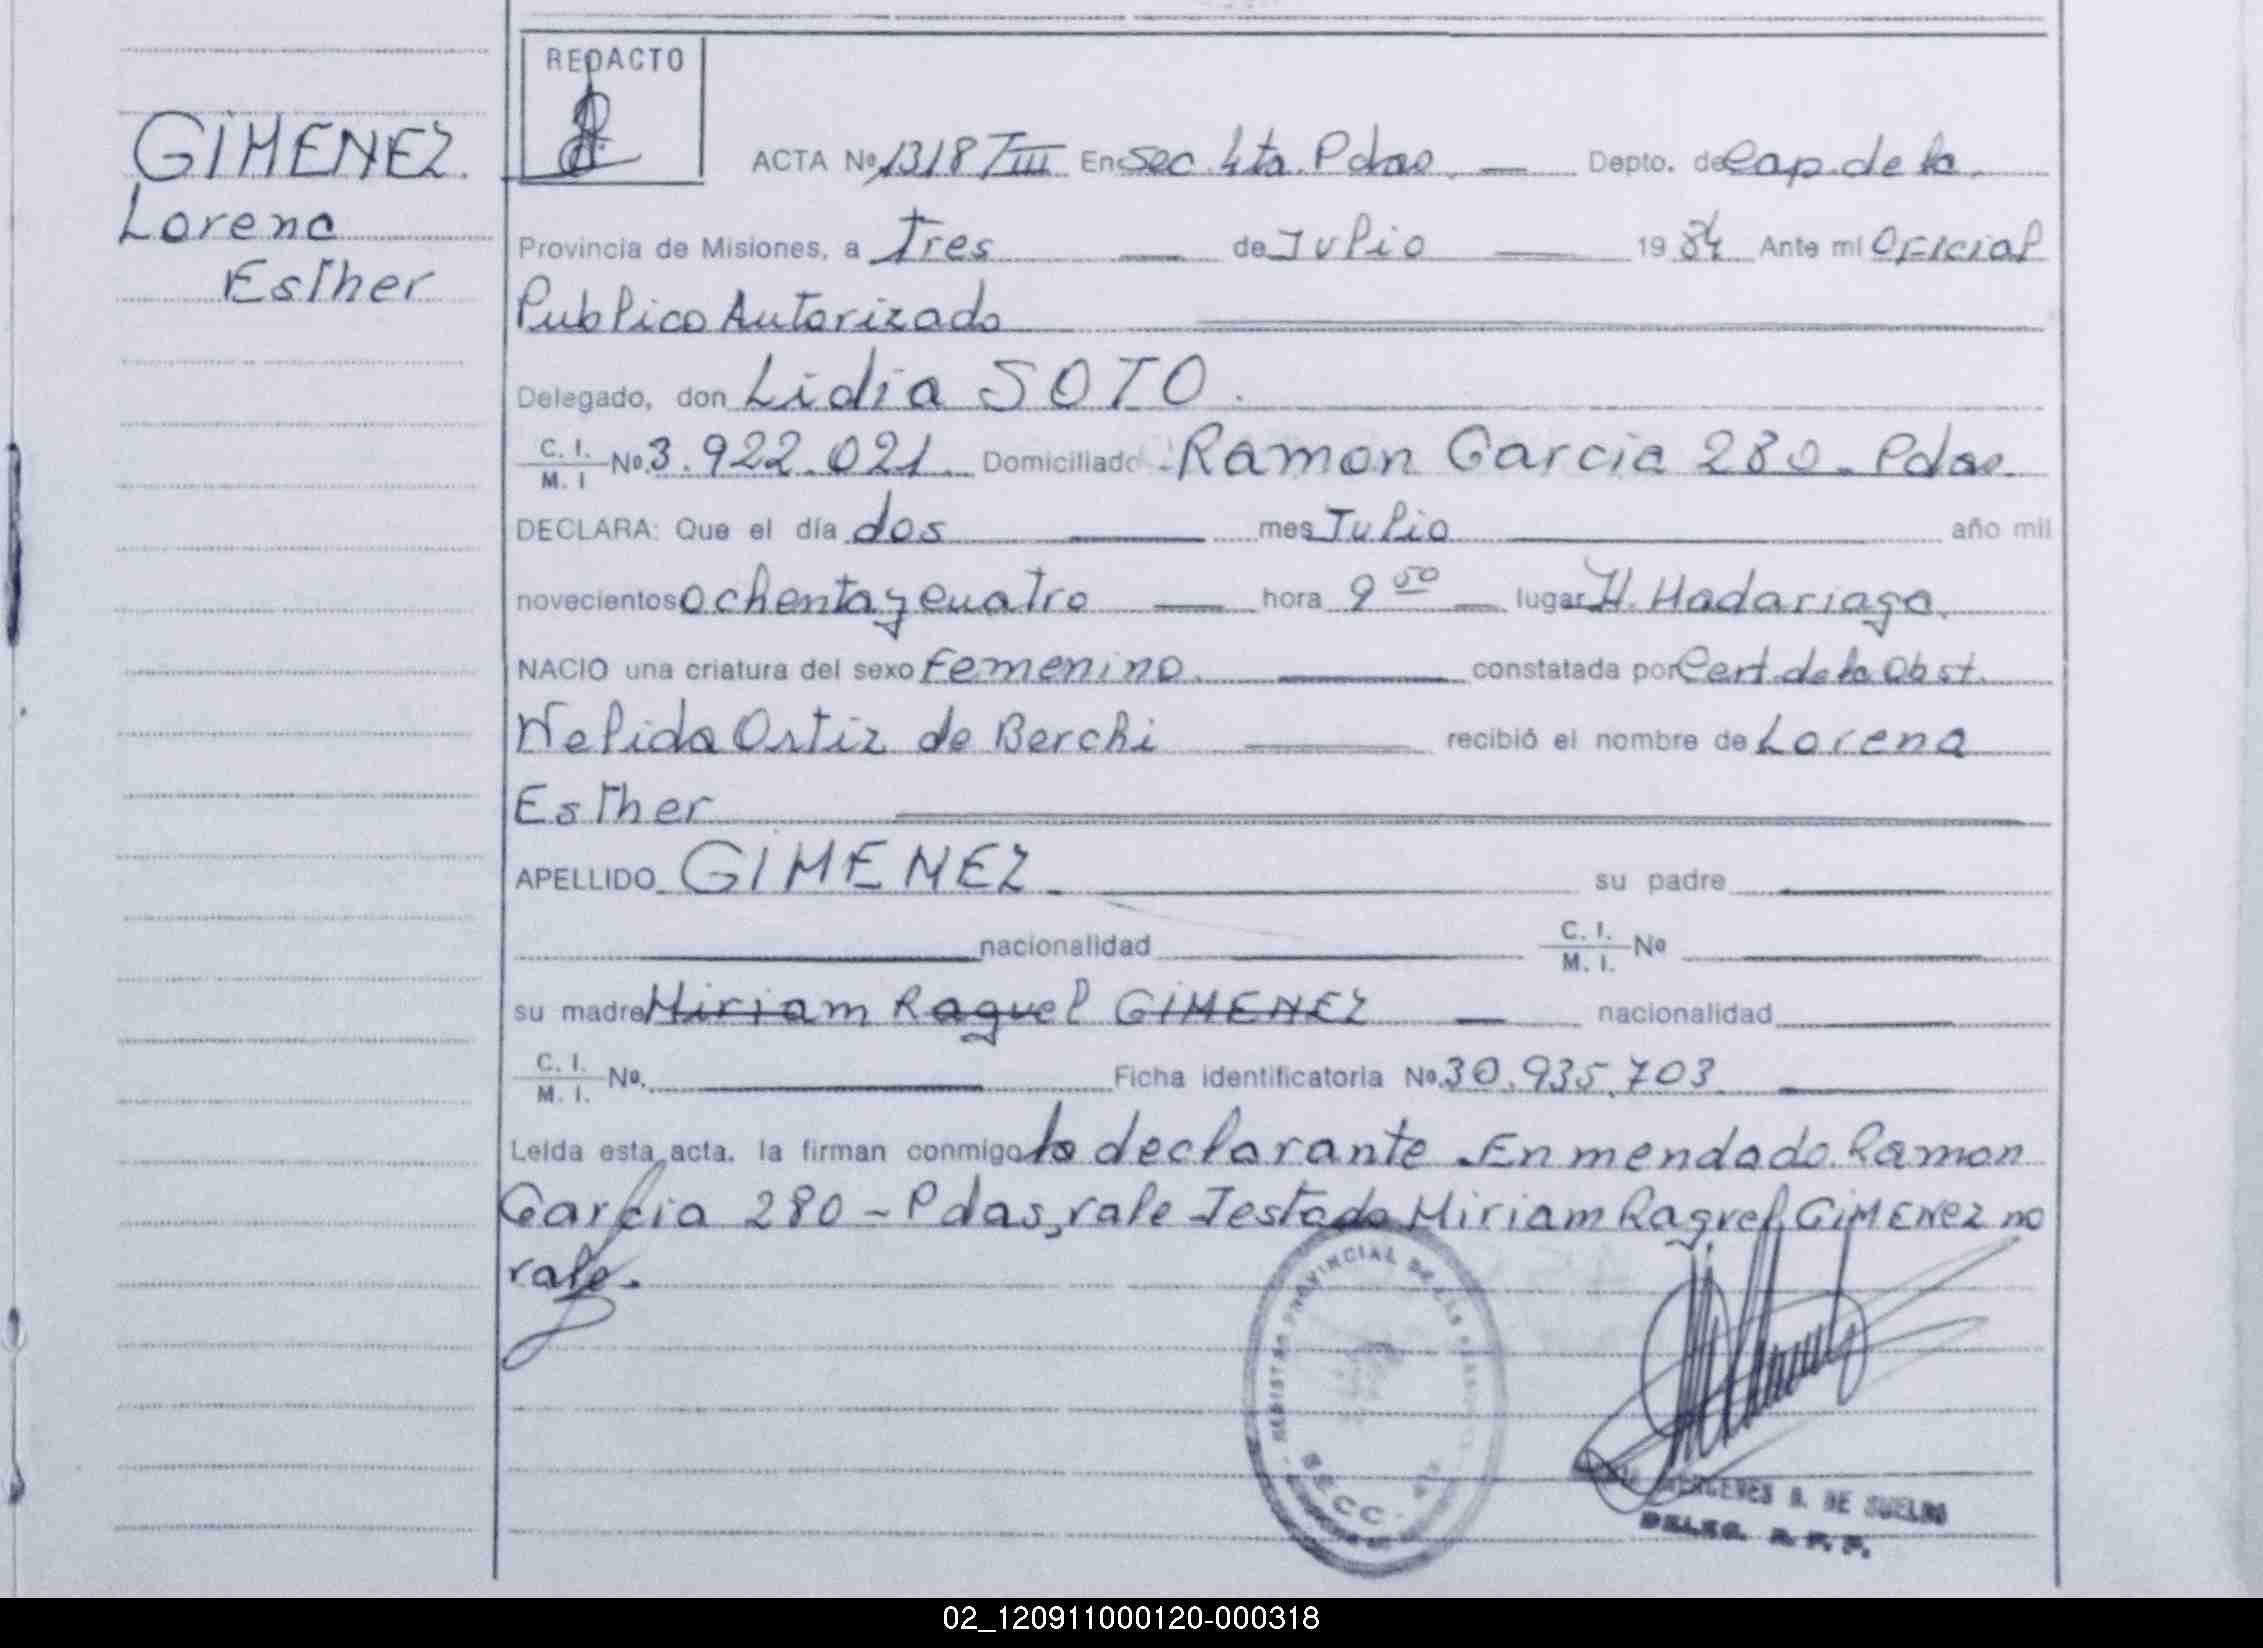 REDACTO
GIMENEZ.
Lorena
Esther
ACTA Nº 1318 TIII En Sec. 4ta. Pdas. Depto. de Cap. de la.
Provincia de Misiones, a Tres de Julio 1984 Ante mi Oficial
Publico Autorizado
Delegado, don Lidia SOTO.
C. I. / M. I Nº 3.922.021. Domiciliado Ramon Garcia 280 - Pdas.
DECLARA: Que el día dos mes Julio año mil
novecientos ochenta y cuatro hora 9 50 lugar H. Madariaga.
NACIO una criatura del sexo Femenino. constatada por Cert. de la Obst.
Nelida Ortiz de Berchi recibió el nombre de Lorena
Esther
APELLIDO GIMENEZ. su padre
nacionalidad C. I. / M. I. Nº
su madre Miriam Raquel GIMENEZ nacionalidad
C. I. / M. I. Nº. Ficha identificatoria Nº 30.935.703
Leída esta acta, la firman conmigo la declarante. Enmendado. Ramon
Garcia 280 - Pdas, vale Testado Miriam Raquel GIMENEZ no
vale.
REGISTRO PROVINCIAL DE LAS PERSONAS
SECC. 4ta
B. DE SUELDO
DELEG. R. P. P.
02_120911000120-000318